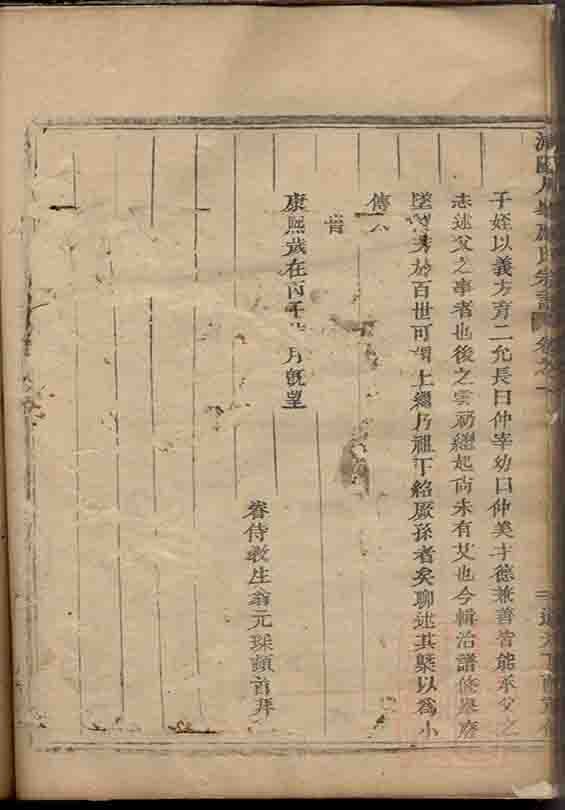 氏宗譜 卷之
子姪以義方育二允長曰仲宰幼曰仲美才德兼善皆能承父之
志述父之事者也後之雲礽繼起尚未有艾也今輯治譜修舉廢
墜 芳於百世可謂上繼乃祖下紹厥孫者矣聊述其槩以為小
傳
康熙歲在丙子 月旣望
眷侍教生翁元珠頓首拜